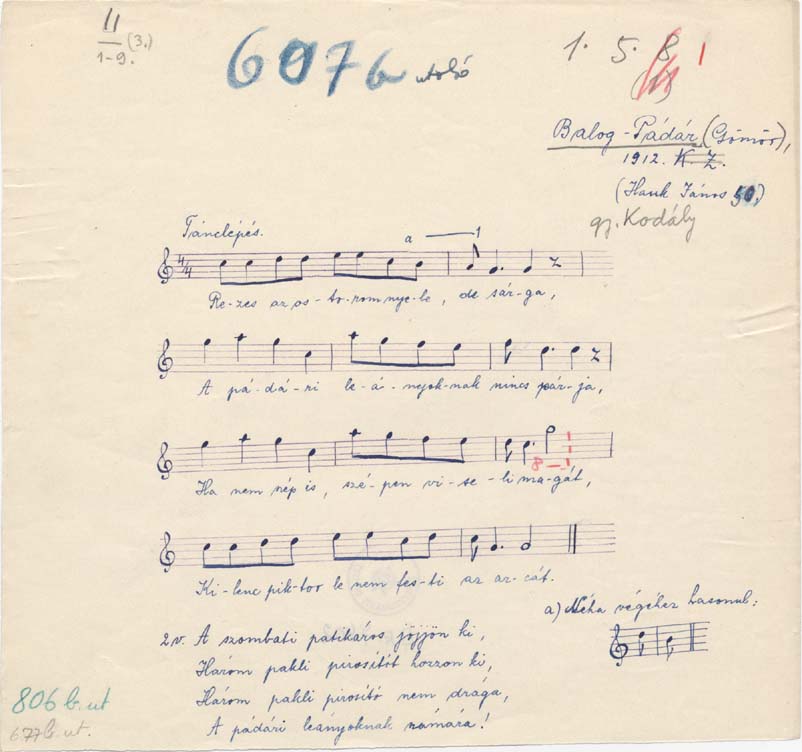 II
1-9. (3.)
607 b utolsó
1. 5. 8 1
(11)
Balog-Pádár (Gömör),
1912. K. Z.
(Hauk János 50.)
gy. Kodály
Tánclépés.
a 1
4/4
Re-zes az os-to-rom nye-le, de sár-ga,
A pá-dá-ri le-á-nyok-nak nincs pár-ja,
8
Ha nem nép is, szé-pen vi-se-li ma-gát,
Ki-lenc pik-tor le nem fes-ti az ar-cát.
a) Néha végéhez hasonul:
2 v. A szombati patikáros jöjjön ki,
Három pakli pirosítót hozzon ki,
Három pakli pirosító nem drága,
A pádári leányoknak számára!
806 b. ut
677 b. ut.